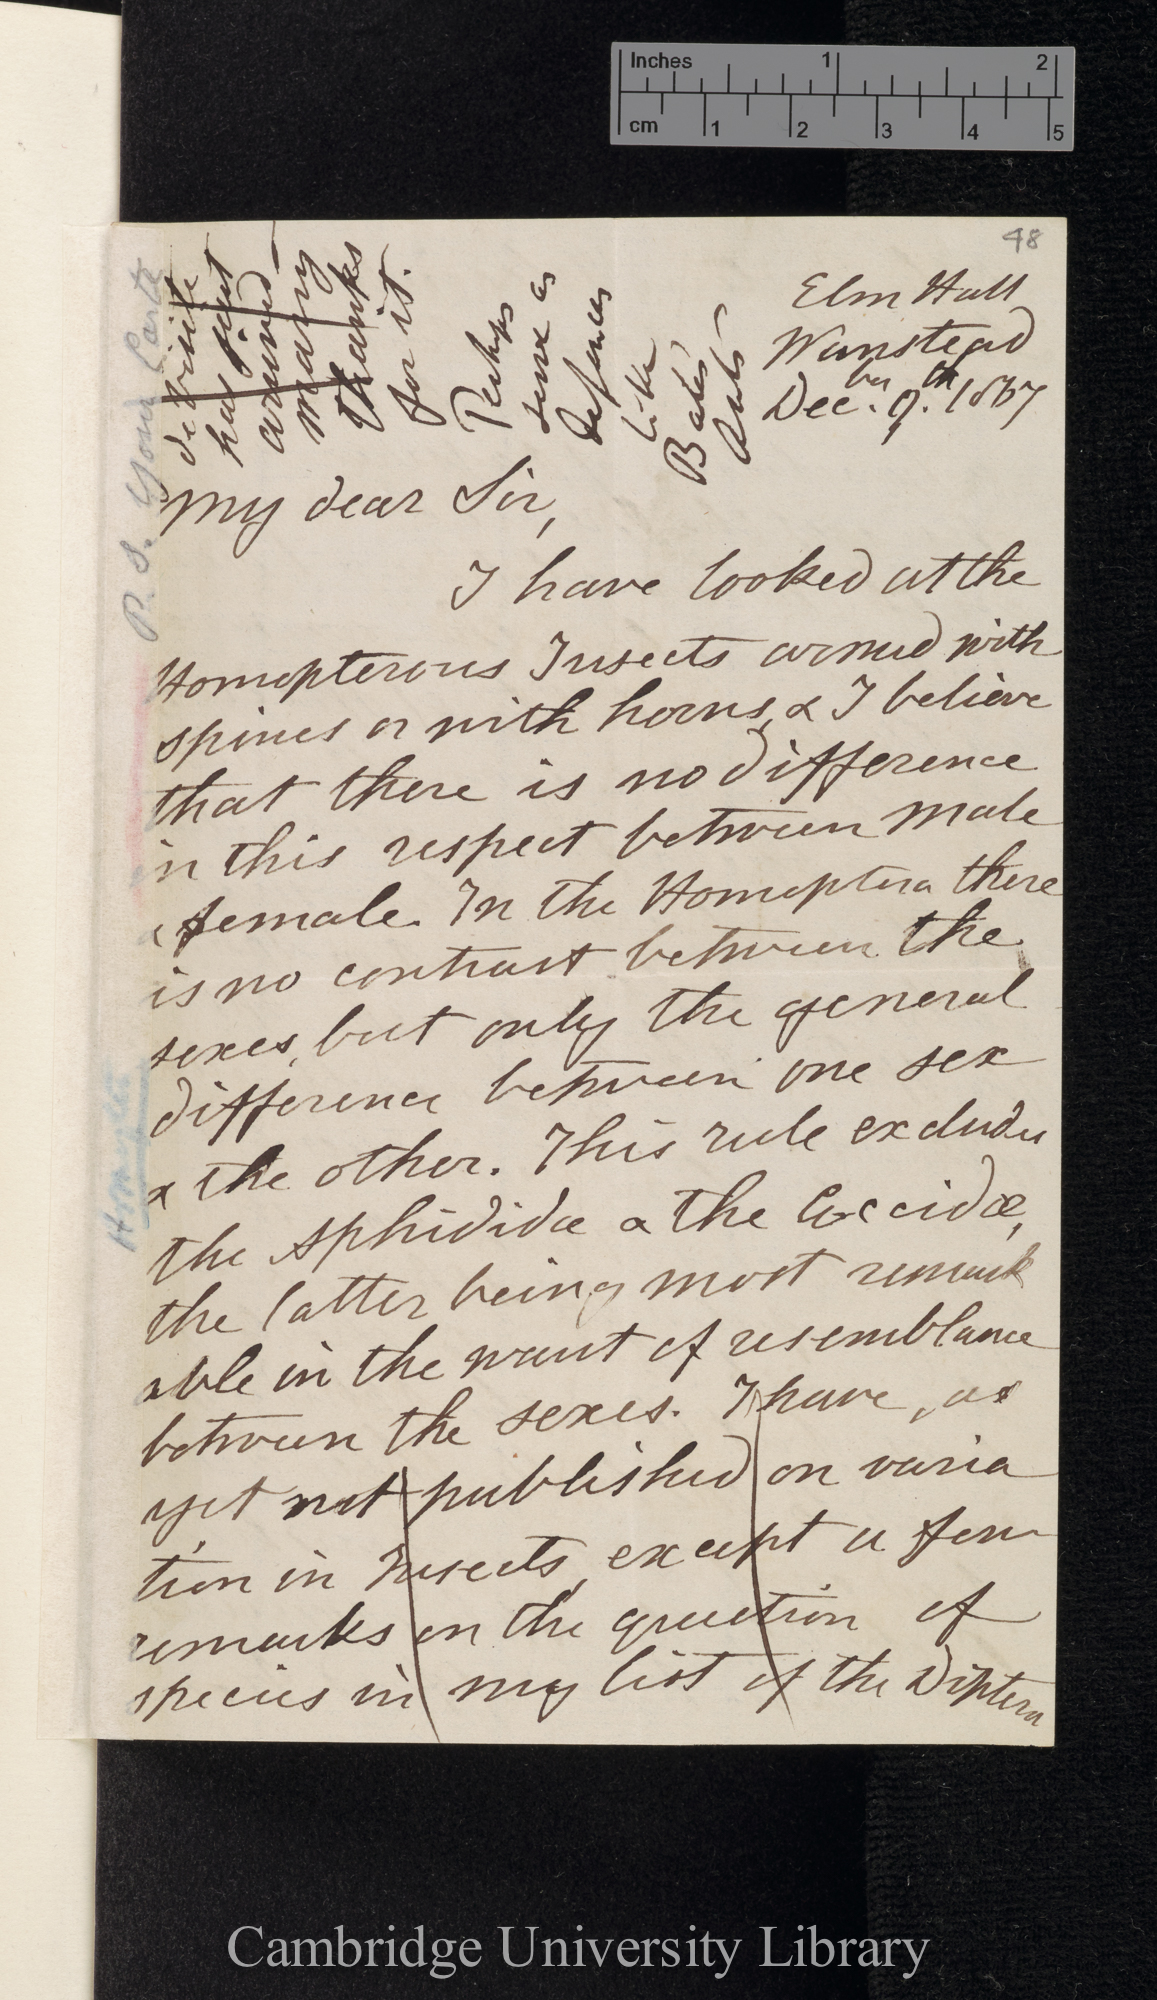 Inches 1 2
cm 1 2 3 4 5
48
Elm Hall
Wanstead
Decber. 9th. 1867
P. S. Your Carte
de visite
has just
arrived –
many
thanks
for it.
Perhaps
serve as
defences
like
Bates'
Ants
My dear Sir,
I have looked at the
Homopterous Insects armed with
spines or with horns, & I believe
that there is no difference
in this respect between male
& female. In the Homoptera there
is no contrast between the
sexes, but only the general
difference between one sex
& the other. This rule excludes
the Aphididæ & the Coccidæ,
the latter being most remark
able in the want of resemblance
between the sexes. I have, as
yet not published on varia
tion in Insects, except a few
remarks on the question of
species in my list of the Diptera
Cambridge University Library